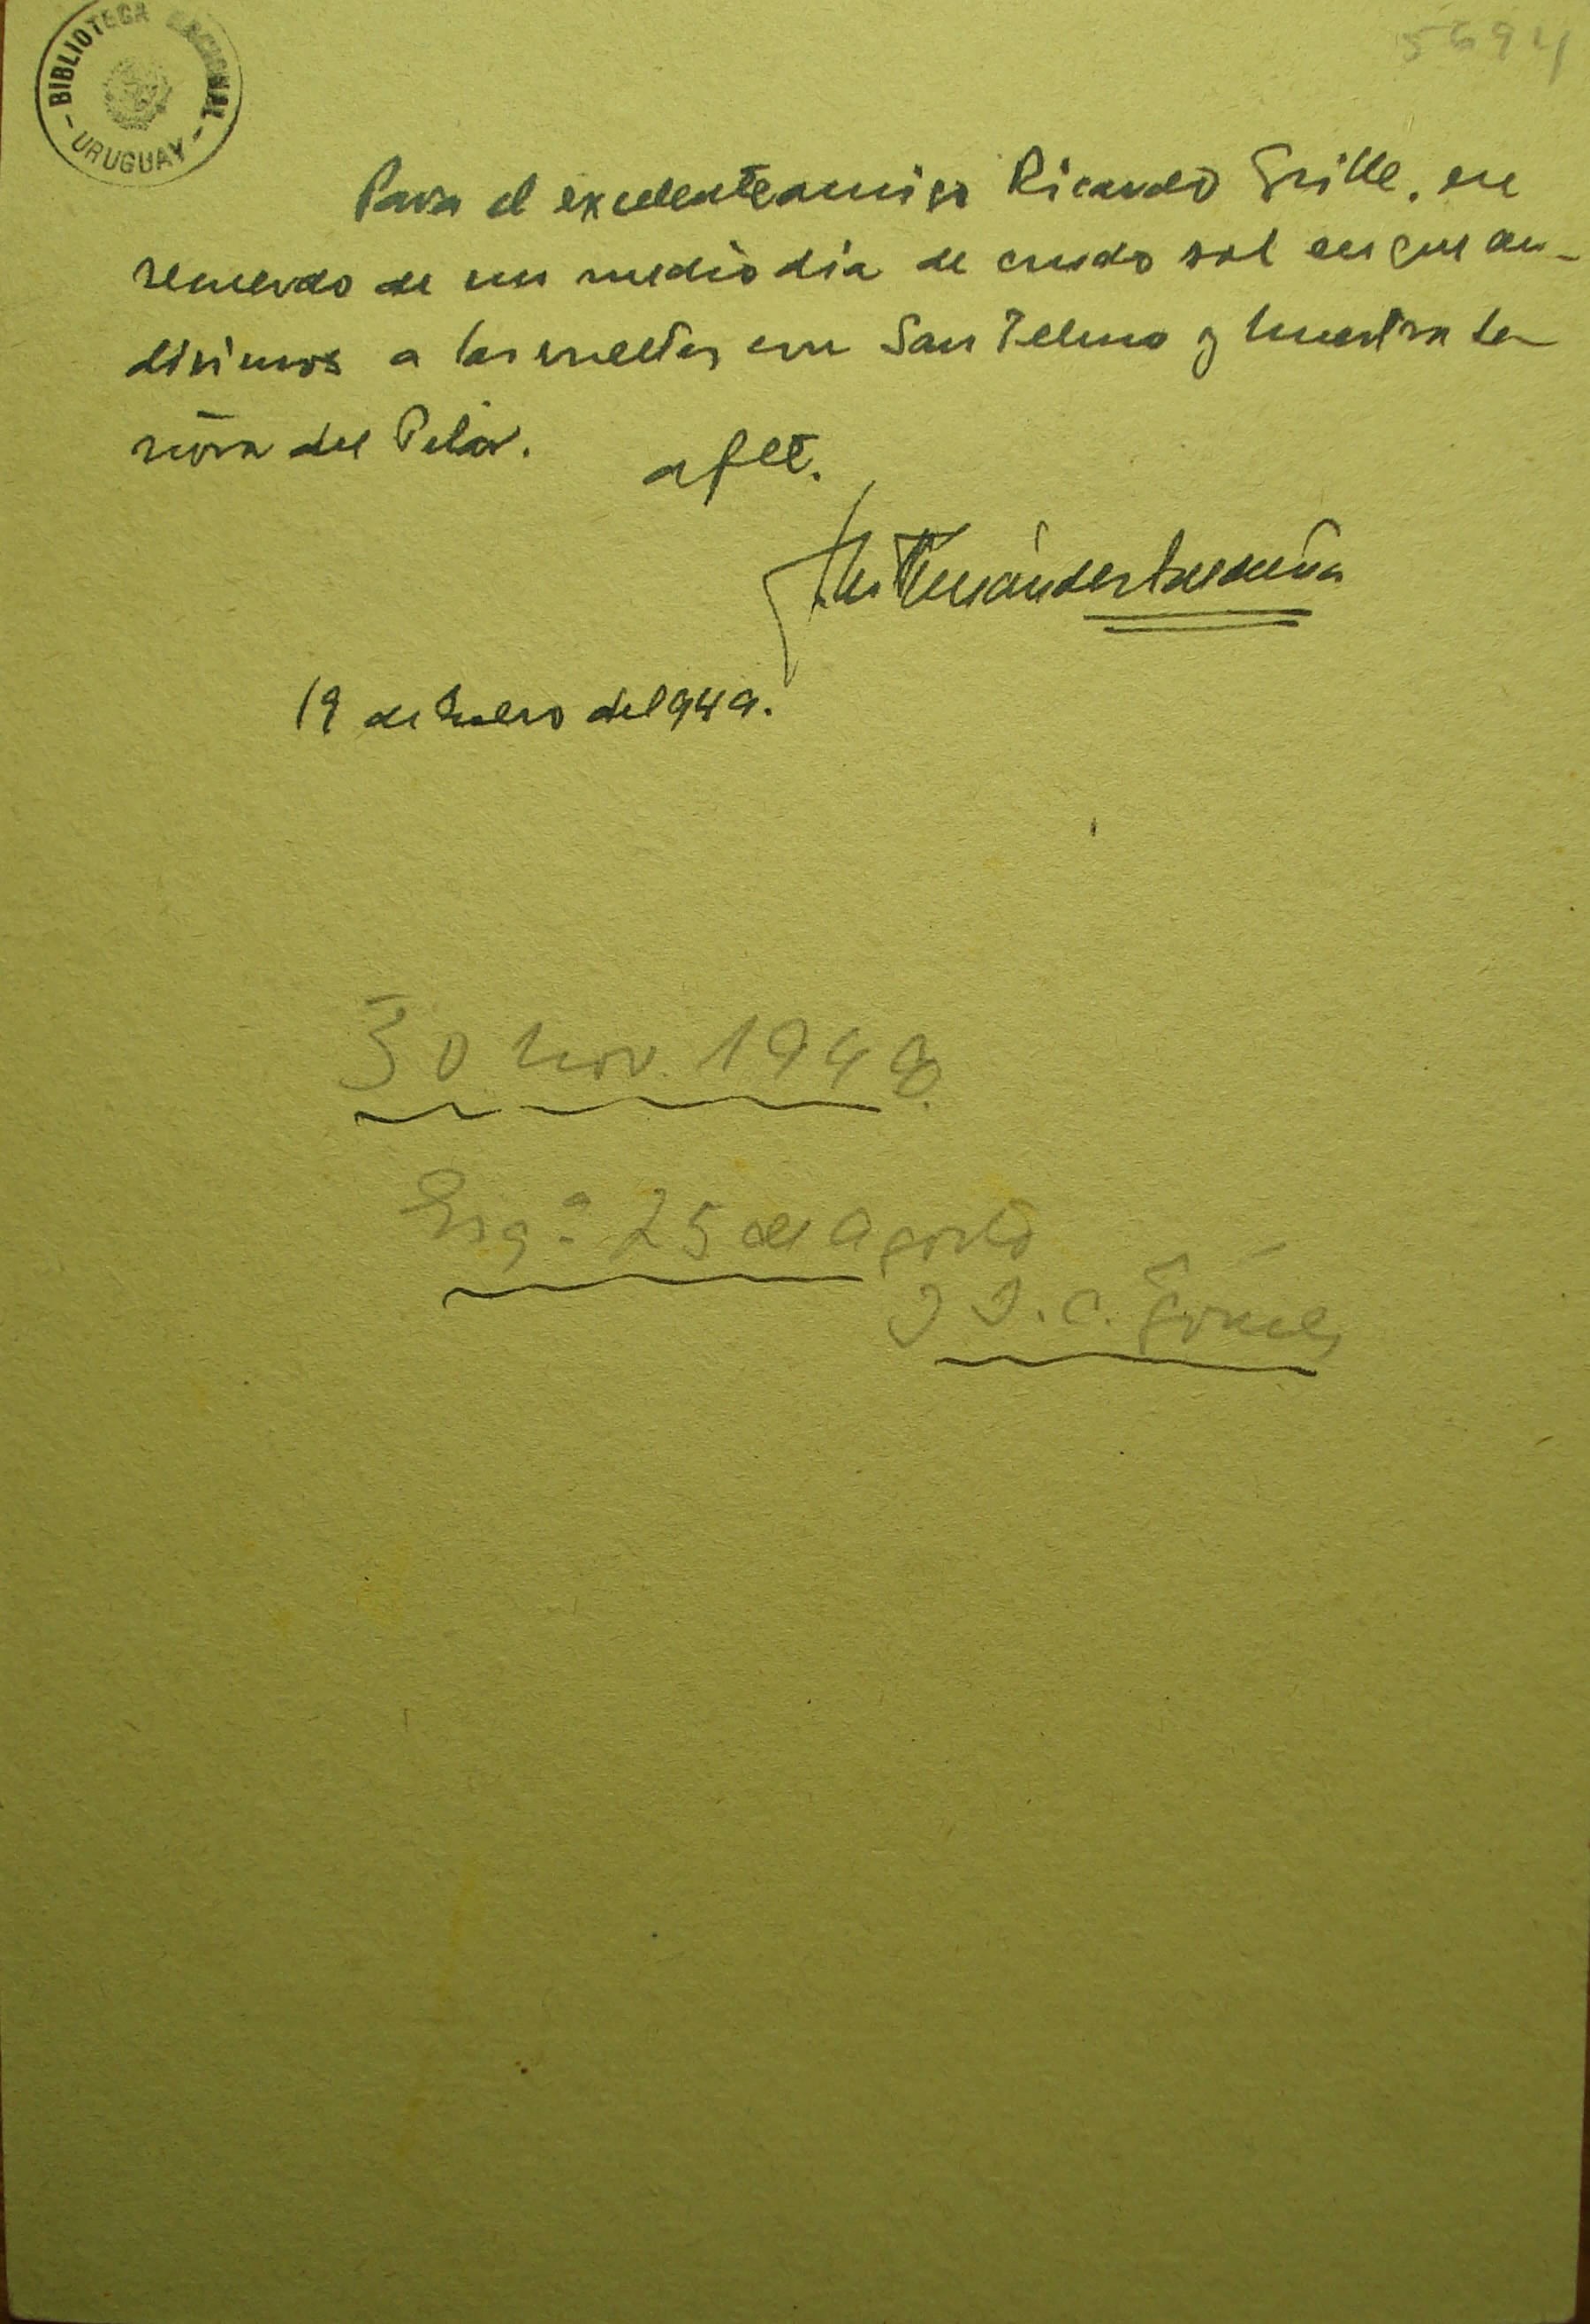 BIBLIOTECA NACIONAL
- URUGUAY -
5694
Para el excelente amigo Ricardo Grille, en
recuerdo de un mediodía de crudo sol en que an-
disimos a las vueltas con San Telmo y Nuestra Se
ñora del Pilar.
afte.
Fernández Saldaña
19 de Enero de 1949.
30 Nov. 1948.
Esqª 25 de Agosto
y J. C. Gómez